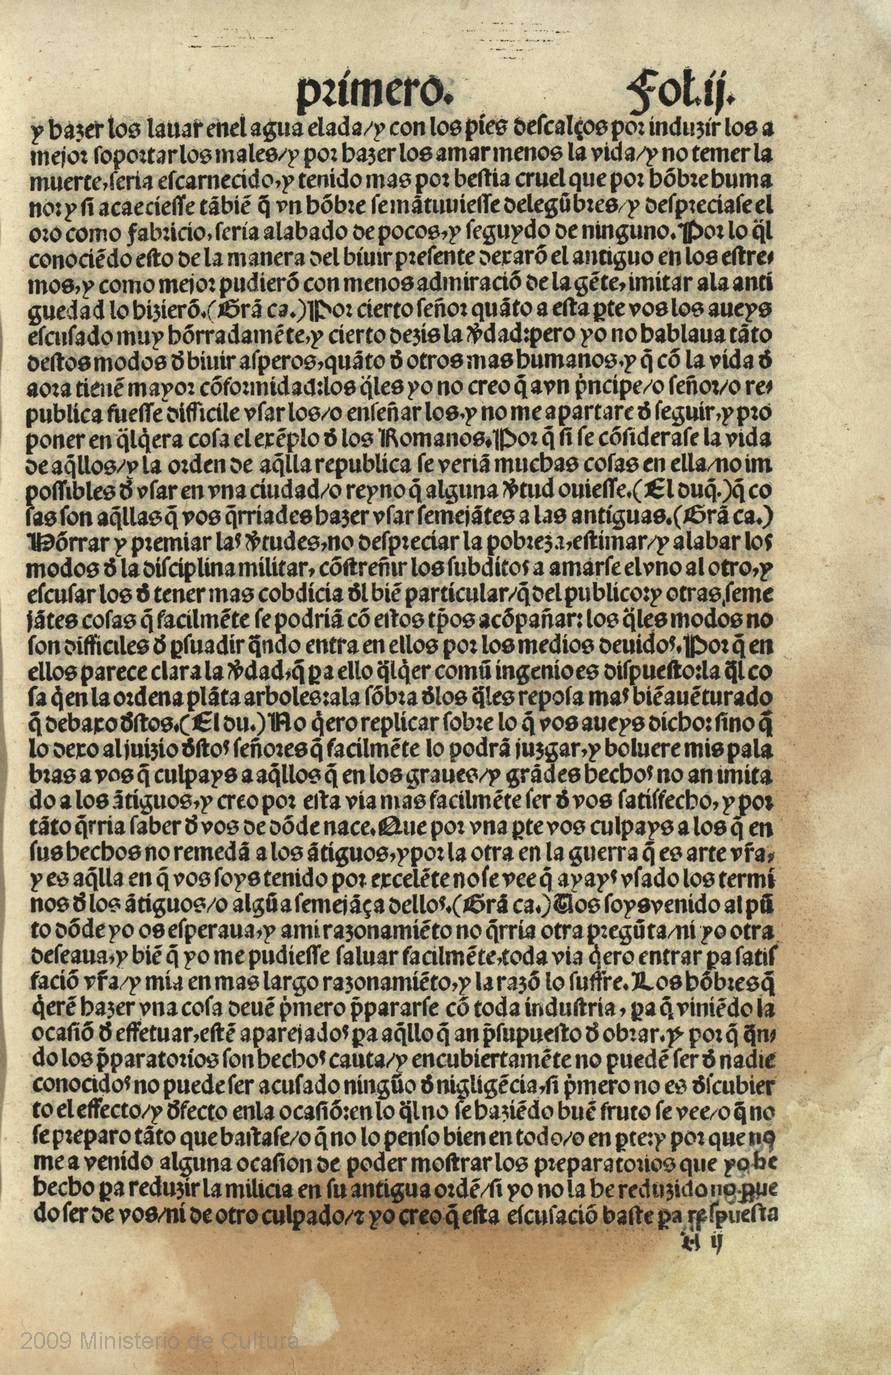 primero. Fol.ij.
y hazer los lauar enel agua elada/y con los pies descalços por induzir los a
mejor soportar los males/y por hazer los amar menos la vida/y no temer la
muerte,seria escarnecido,y tenido mas por bestia cruel que por hõbre huma
no:y si acaeciesse tãbiẽ q̃ vn hõbre se mãtuuiesse delegũbres/y despreciase el
oro como fabricio,seria alabado de pocos,y seguydo de ninguno.Por lo q̃l
conociẽdo esto de la manera del biuir presente dexarõ el antiguo en los estre-
mos,y como mejor pudierõ con menos admiraciõ de la gẽte,imitar ala anti
guedad lo hizierõ.(Grã ca.)Por cierto señor quãto a esta ꝑte vos los aueys
escusado muy hõrradamẽte,y cierto dezis la v̉dad:pero yo no hablaua tãto
destos modos d̉ biuir asperos,quãto d̉ otros mas humanos,y q̃ cõ la vida d̉
aora tienẽ mayor cõformidad:los q̃les yo no creo q̃ a vn p̃ncipe/o señor/o re-
publica fuesse difficile vsar los/o enseñar los,y no me apartare d̉ seguir,y pro
poner en q̃lq̃era cosa el exẽplo d̉ los Romanos.Por q̃ si se cõsiderase la vida
de aq̃llos/y la orden de aq̃lla republica se veriã muchas cosas en ella/no im
possibles d̉ vsar en vna ciudad/o reyno q̃ alguna v̉tud ouiesse.(El duq̃.)q̃ co
sas son aq̃llas q̃ vos q̃rriades hazer vsar semejãtes a las antiguas.(Grã ca.)
Hõrrar y premiar las v̉tudes,no despreciar la pobreza,estimar/y alabar los
modos d̉ la disciplina militar, cõstreñir los subditos a amarse el vno al otro,y
escusar los d̉ tener mas cobdicia d̉l biẽ particular/q̃ del publico:y otras seme
jãtes cosas q̃ facilmẽte se podriã cõ estos tp̃os acõpañar: los q̃les modos no
son difficiles d̉ ꝑsuadir q̃ndo entra en ellos por los medios deuidos.Por q̃ en
ellos parece clara la v̉dad,q̃ ꝑa ello q̃lq̃er comũ ingenio es dispuesto:la q̃l co
sa q̃en la ordena plãta arboles:ala sõbra d̉los q̃les reposa mas biẽauẽturado
q̃ debaxo d̉stos.(El du.)No q̃ero replicar sobre lo q̃ vos aueys dicho: sino q̃
lo dexo al juizio d̉stos señores q̃ facilmẽte lo podrã juzgar,y boluere mis pala
bras a vos q̃ culpays a aq̃llos q̃ en los graues/y grãdes hechos no an imita
do a los ãtiguos,y creo por esta via mas facilmẽte ser d̉ vos satisfecho,y por
tãto q̃rria saber d̉ vos de dõde nace.Que por vna ꝑte vos culpays a los q̃ en
sus hechos no remedã a los ãtiguos,y por la otra en la guerra q̃ es arte vr̃a,
y es aq̃lla en q̃ vos soys tenido por excelẽte no se vee q̃ ayays vsado los termi
nos d̉ los ãtiguos/o algũa semejãça dellos.(Grã ca.)Vos soys venido al pũ
to dõde yo os esperaua,y a mi razonamiẽto no q̃rria otra pregũta/ni yo otra
deseaua,y biẽ q̃ yo me pudiesse saluar facilmẽte,toda via q̃ero entrar ꝑa satis
faciõ vr̃a/y mia en mas largo razonamiẽto,y la razõ lo suffre.Los hõbres q̃
q̃erẽ hazer vna cosa deuẽ p̃mero p̃pararse cõ toda industria, ꝑa q̃ viniẽdo la
ocasiõ d̉ effetuar,estẽ aparejados ꝑa aq̃llo q̃ an p̃supuesto d̉ obrar.y por q̃ q̃n-
do los p̃paratorios son hechos cauta/y encubiertamẽte no puedẽ ser d̉ nadie
conocidos no puede ser acusado ningũo d̉ nigligẽcia,si p̃mero no es d̉scubier
to el effecto/y d̉fecto enla ocasiõ:en lo q̃l no se haziẽdo buẽ fruto se vee/o q̃ no
se preparo tãto que bastase/o q̃ no lo penso bien en todo/o en ꝑte:y por que no
me a venido alguna ocasion de poder mostrar los preparatorios que yo he
hecho ꝑa reduzir la milicia en su antigua ordẽ/si yo no la he reduzido no pue
do ser de vos/ni de otro culpado/ꝛ yo creo q̃ esta escusaciõ baste ꝑa respuesta
A ij
2009 Ministerio de Cultura